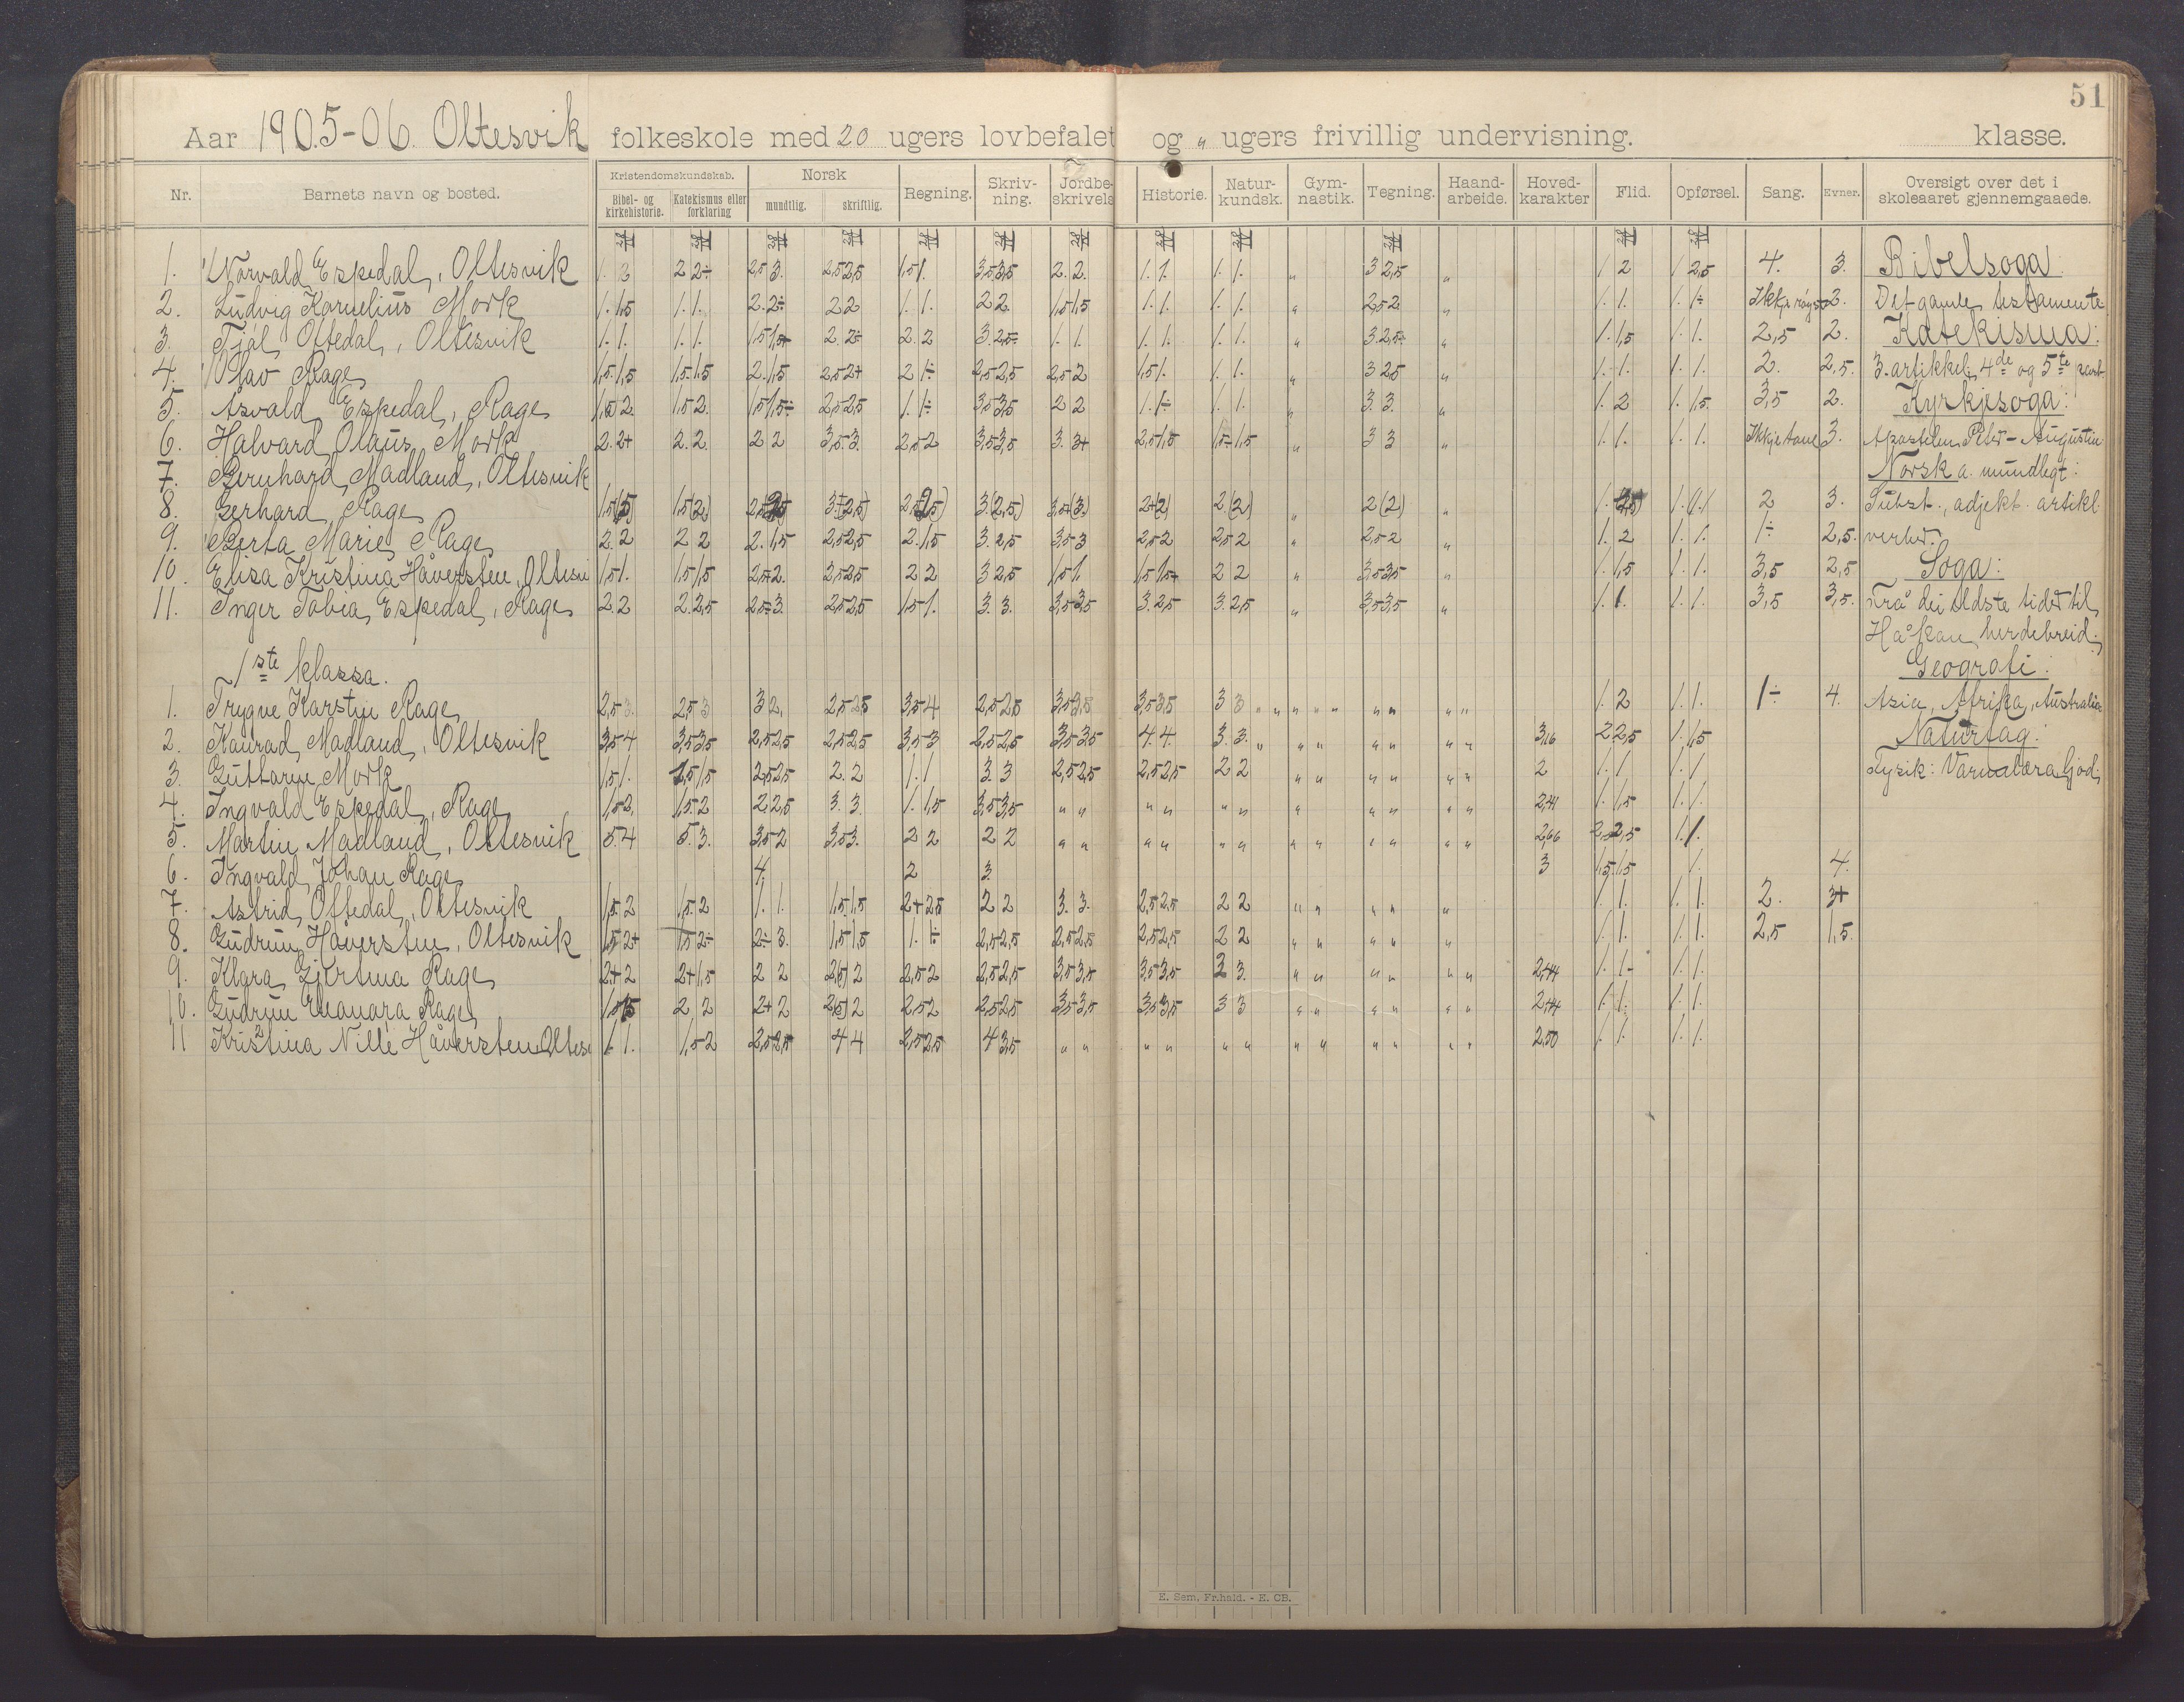 51
Aar 1905-06. Oltesvik folkeskole med 20 ugers lovbefalet og „ ugers frivillig undervisning. klasse.
Nr. Barnets navn og bosted. Kristendomskundskab. Bibel- og kirkehistorie. Katekismus eller forklaring Norsk mundtlig. skriftlig. Regning. Skriv-ning. Jordbe-skrivels Historie. Natur-kundsk. Gym-nastik. Tegning. Haand-arbeide. Hoved-karakter Flid. Opførsel. Sang. Evner. Oversigt over det i skoleaaret gjennemgaaede.
1. Norvald Espedal, Oltesvik 2 2÷ 2,5 3. 2,5 2,5 1,5 1. 3,5 3,5 2. 2. 1. 1. 1. 1. „ 3 2,5 „ 1. 2 1. 2,5 4. 3. Bibelsoga:
2. Ludvig Kornelius Mork 1. 1,5 1. 1. 2. 2÷ 2 2 1. 1. 2 2. 1,5 1,5 1. 1. 1. 1. „ 2,5 2 „ 1. 1. 1. 1÷ Ikkje røyst 2. Det gamle testamente
3. Oftedal, Oltesvik 1. 1. 1. 1. 1,5 1,5+ 2. 2÷ 2. 2 3. 2,5÷ 1. 1. 1. 1. 1. 1. „ 3. 2,5÷ „ 1. 1,5 1. 1. 2,5 2. Katekisma:
4. Olav Rage 1,5. 1,5 1,5. 1,5 2. 1,5 2,5 2+ 2 1÷ 2,5 2,5 2,5 2 1,5 1. 1. 1. „ 3 2,5 „ 1. 1. 1. 1. 2. 2,5. 3. artikkel, 4de og 5te part
5. Asvald Espedal, Rage 1,5 2. 1,5 2. 1,5 1,5÷ 2,5 2,5 1. 1÷ 3,5 3,5 2 2 1. 1÷ 1. 1. „ 3. 3. „ 1. 2 1. 1,5. 3,5 2. Kyrkjesoga:
6. Halvard Olaus Mork 2. 2+ 2. 2. 2 2 3,5. 3. 2,5 2 3,5 3,5 3. 3+ 2,5 1,5 1,5÷ 1,5 „ 3 3 „ 1. 1. 1. 1. Ikkje tone 3. Apostelen Peter - Augustin
7. Bernhard Madland, Oltesvik Norsk a. mundlegt:
8. Gerhard Rage 1,5 (2) 3 (2,5) 3,5+ (3) 2+ (2) 2. (2) „ 2 (2) „ 2 3. Subst., adjekt. artikl.
9. Berta Marie Rage 2. 2 2 2 2. 1,5 2,5 2,5 2. 1,5 3. 2,5 3,5 3 2,5 2 2,5 2 „ 2,5 2 „ 1. 2 1. 1. 1÷ 2,5. verbet.
10. Elisa Kristina Håversten, Oltesvi 1,5 1. 1,5 1,5 2,5+ 2. 2,5 2,5 2 2 3 2,5 1,5 1. 1,5 1,5+ 2 2 „ 3,5 3,5 „ 1. 1,5 1. 1. 3,5 2,5 Soga:
11. Inger Tobia Espedal, Rage 2. 2 2. 2,5 2,5÷ 3. 2,5 2,5 1,5 1. 3. 3. 3,5 3,5 3. 2,5 3. 2,5 „ 3,5 3,5 „ 1. 1. 1. 1. 3,5 3,5. Frå dei eldste tider til
Håkon herdebreid.
1ste klassa. Geografi:
1. Trygve Karstin Rage 2,5 3. 2,5 3 3 2. 2,5 2,5 3,5 4 2,5 2,5 3,5 3,5 3,5 3,5 3 3 „ „ „ „ „ „ „ „ „ 1. 2 1. 1. 1÷ 4. Asia, Afrika, Australia
2. Konrad Madland, Oltesvik 3,5 4 3,5 3,5 2,5 2,5 2,5 2,5 3,5 3 2,5 2,5 3,5 3,5 4. 4. 3. 3. „ „ „ „ „ „ „ 3,16 2 2,5 1. 1,5 Naturfag:
3. Guttorm Mork 1,5 1. 1,5 1,5 2,5 2,5 2. 2 1. 1 3. 3 2,5 2,5 2,5 2,5 2 2 „ „ „ „ „ „ 2 1. 1 1. 1 Fysik: Varmelæra
4. Ingvald Espedal, Rage 1,5 2. 1,5 2 2. 2,5 3. 3. 1. 1,5 3,5 3,5 „ „ „ „ „ „ „ „ „ „ „ 2,41 1. 1,5 1. 1.
5. Martin Madland, Oltesvik 5. 4 5. 3. 3,5 2 3,5 3. 2 2 2 2 „ „ „ „ „ „ „ „ „ „ „ „ 2,66 2. 2,5 1. 1.
6. Ingvald Johan Rage 4. 2 3. 3 1,5. 1,5 1. 4.
7. Astrid Oftedal, Oltesvik 1,5. 2 1,5. 2 1. 1. 1,5 1,5 2+ 2,5 2 2 3. 3. 2,5 2,5 2 2 „ „ „ „ „ 1. 1. 1. 1. 2. 3+
8. Gudrun Håversten, Oltesvik 1,5 2+ 1,5 2÷ 2÷ 3. 1,5 1,5 1. 1÷ 2,5 2,5 2,5 2,5 2,5 2,5 2 2 „ „ „ „ „ 1. 1. 1. 1. 2,5 1,5.
9. Klara Gjertina Rage 2+ 2 2+ 1,5 2 2 2(5) 2 2,5 2 2,5 2,5 3,5 3,5 3,5 3,5 3. „ „ „ „ „ „ 2,44 1. 1. 1. 1.
10. Gudrun Rage 2 2 2+ 2 2(5) 2 2,5 2 2,5 2,5 3,5 3,5 3,5 3,5 3 3 „ „ „ „ „ „ 2,44 1. 1. 1. 1.
11 Kristina Nille Håversten Oltes 1. 1. 1,5 2 2,5 2,5 4 4 2,5 2,5 4 3,5 „ „ „ „ „ „ „ „ „ „ „ „ 2,50 1. 1. 1. 1.
E. Sem, Fr.hald. - E. CB.